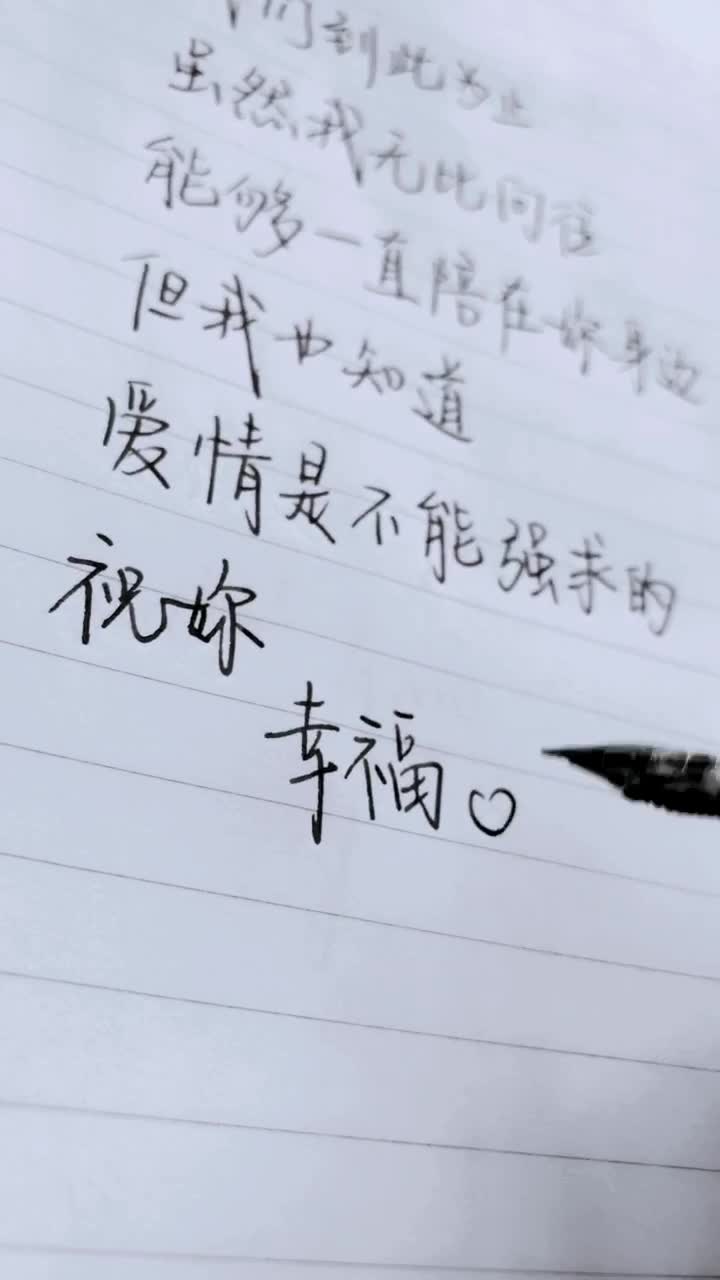 们到此为止
虽然我无比向往
能够一直陪在妳身边
但我也知道
爱情是不能强求的
祝妳
幸福。